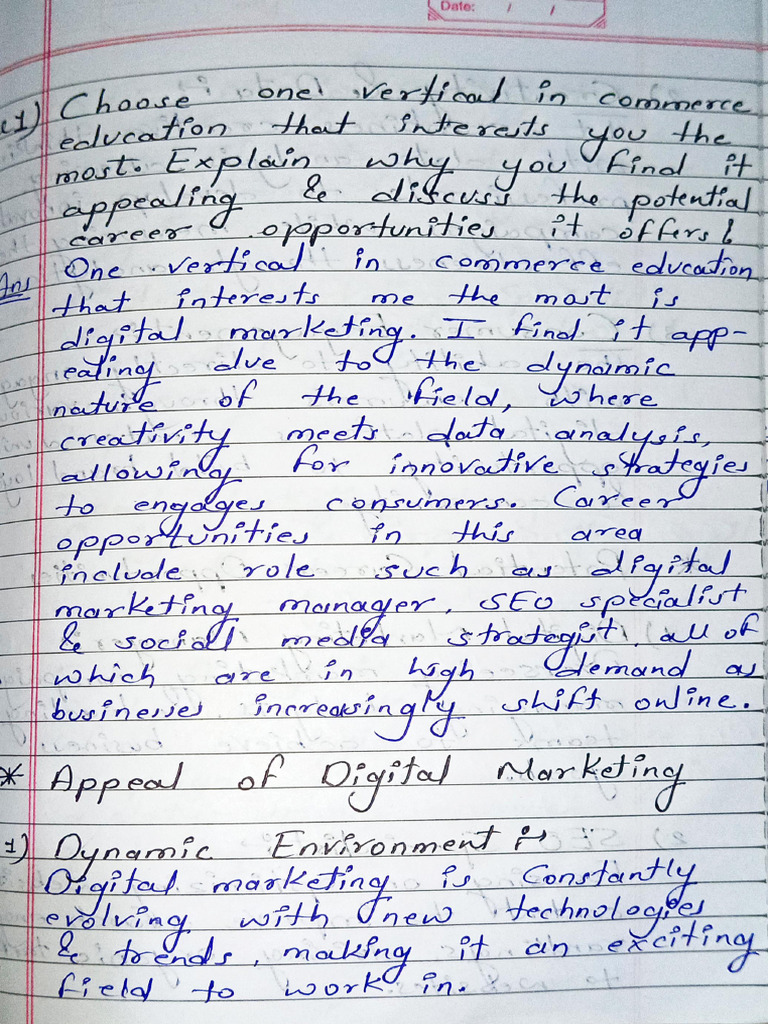 Date: / /
Q1) Choose one vertical in commerce
education that interests you the
most. Explain why you find it
appealing & discuss the potential
career opportunities it offers?
Ans One vertical in commerce education
that interests me the most is
digital marketing. I find it app-
ealing due to the dynamic
nature of the field, where
creativity meets data analysis,
allowing for innovative strategies
to engages consumers. Career
opportunities in this area
include role such as digital
marketing manager, SEO specialist
& social media strategist, all of
which are in high demand as
businesses increasingly shift online.
* Appeal of Digital Marketing
1) Dynamic Environment :-
Digital marketing is Constantly
evolving with new technologies
& trends, making it an exciting
field to work in.